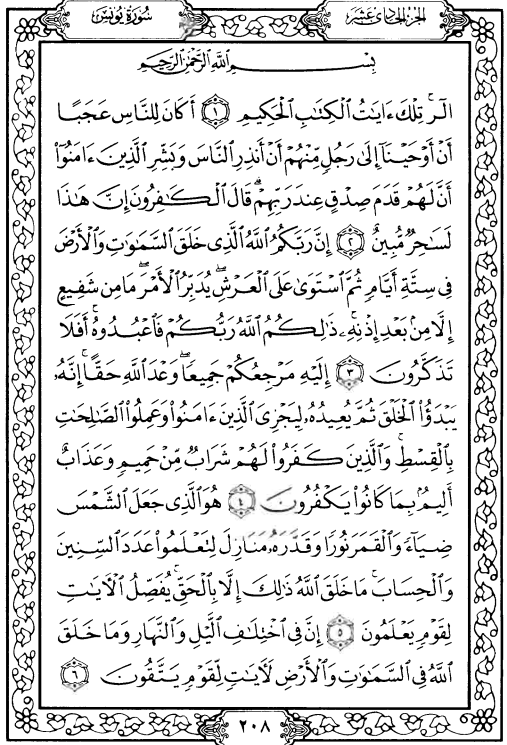 الجزء الحادي عشر
سورة يونس
بِسْمِ اللَّهِ الرَّحْمَٰنِ الرَّحِيمِ
الٓر ۚ تِلْكَ ءَايَٰتُ الْكِتَٰبِ الْحَكِيمِ ١ أَكَانَ لِلنَّاسِ عَجَبًا
أَنْ أَوْحَيْنَآ إِلَىٰ رَجُلٍ مِّنْهُمْ أَنْ أَنذِرِ النَّاسَ وَبَشِّرِ الَّذِينَ ءَامَنُوٓا۟
أَنَّ لَهُمْ قَدَمَ صِدْقٍ عِندَ رَبِّهِمْ ۗ قَالَ الْكَٰفِرُونَ إِنَّ هَٰذَا
لَسَٰحِرٌ مُّبِينٌ ٢ إِنَّ رَبَّكُمُ اللَّهُ الَّذِى خَلَقَ السَّمَٰوَٰتِ وَالْأَرْضَ
فِى سِتَّةِ أَيَّامٍ ثُمَّ اسْتَوَىٰ عَلَى الْعَرْشِ ۖ يُدَبِّرُ الْأَمْرَ ۖ مَا مِن شَفِيعٍ
إِلَّا مِنۢ بَعْدِ إِذْنِهِۦ ۚ ذَٰلِكُمُ اللَّهُ رَبُّكُمْ فَاعْبُدُوهُ ۚ أَفَلَا
تَذَكَّرُونَ ٣ إِلَيْهِ مَرْجِعُكُمْ جَمِيعًا ۖ وَعْدَ اللَّهِ حَقًّا ۚ إِنَّهُۥ
يَبْدَؤُا۟ الْخَلْقَ ثُمَّ يُعِيدُهُۥ لِيَجْزِىَ الَّذِينَ ءَامَنُوا۟ وَعَمِلُوا۟ الصَّٰلِحَٰتِ
بِالْقِسْطِ ۚ وَالَّذِينَ كَفَرُوا۟ لَهُمْ شَرَابٌ مِّنْ حَمِيمٍ وَعَذَابٌ
أَلِيمٌۢ بِمَا كَانُوا۟ يَكْفُرُونَ ٤ هُوَ الَّذِى جَعَلَ الشَّمْسَ
ضِيَآءً وَالْقَمَرَ نُورًا وَقَدَّرَهُۥ مَنَازِلَ لِتَعْلَمُوا۟ عَدَدَ السِّنِينَ
وَالْحِسَابَ ۚ مَا خَلَقَ اللَّهُ ذَٰلِكَ إِلَّا بِالْحَقِّ ۚ يُفَصِّلُ الْءَايَٰتِ
لِقَوْمٍ يَعْلَمُونَ ٥ إِنَّ فِى اخْتِلَٰفِ الَّيْلِ وَالنَّهَارِ وَمَا خَلَقَ
اللَّهُ فِى السَّمَٰوَٰتِ وَالْأَرْضِ لَءَايَٰتٍ لِّقَوْمٍ يَتَّقُونَ ٦
٢٠٨